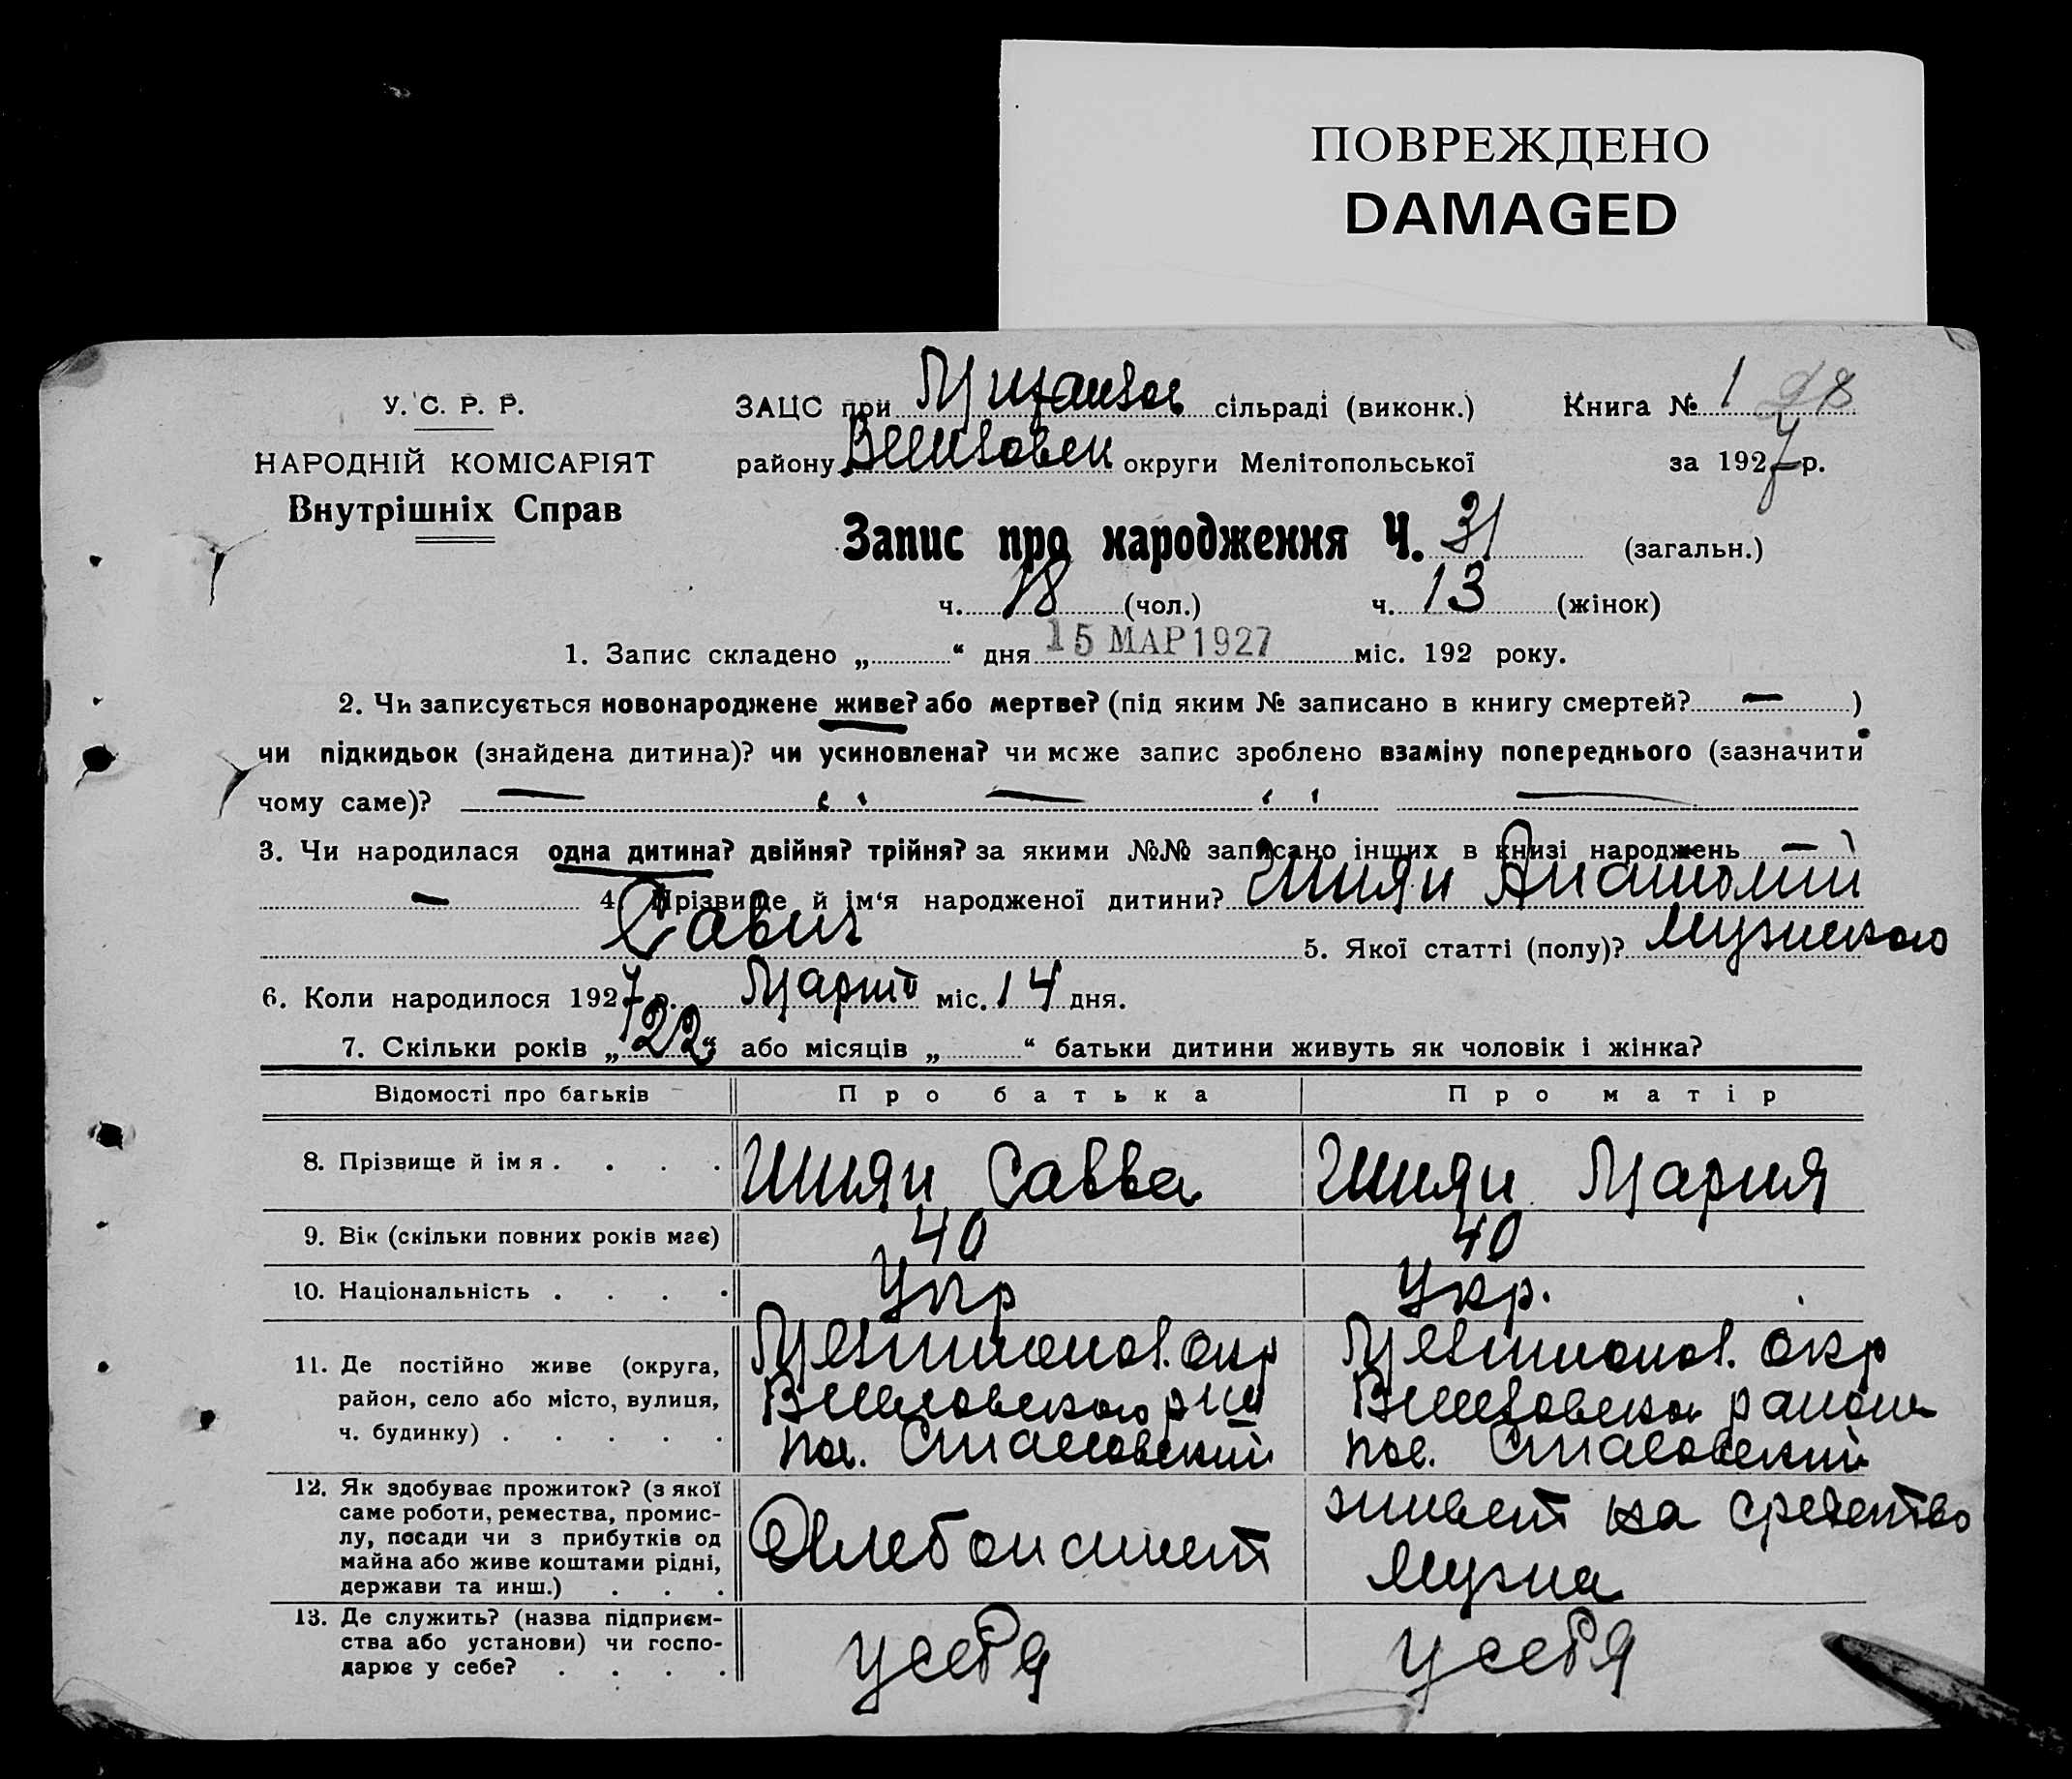 ПОВРЕЖДЕНО
DAMAGED
У. С. Р. Р.
НАРОДНІЙ КОМІСАРІЯТ
Внутрішніх Справ
ЗАЦС при сільраді (виконк.)
району округи Мелітопольської
Книга № 1 28
за 1927 р.
Запис про народження Ч. 31 (загальн.)
ч. 18 (чол.) ч. 13 (жінок)
1. Запис складено „ “ дня 15 МАР 1927 міс. 192 року.
2. Чи записується новонароджене живе? або мертве? (під яким № записано в книгу смертей? — )
чи підкидьок (знайдена дитина)? чи усиновлена? чи може запис зроблено взаміну попереднього (зазначити
чому саме)? — „ — „ —
3. Чи народилася одна дитина? двійня? трійня? за якими №№ записано інших в книзі народжень —
— 4. Прізвище й ім‘я народженої дитини? Шиян Анатолий
Савич 5. Якої статті (полу)? Мужского
6. Коли народилося 1927 р. Март міс. 14 дня.
7. Скільки років „ 22 “ або місяців „ “ батьки дитини живуть як чоловік і жінка?
Відомості про батьків Про батька Про матір
8. Прізвище й імя . . . . Шиян Савва Шиян Мария
9. Вік (скільки повних років має) 40 40
10. Національність . . . . Укр Укр.
11. Де постійно живе (округа, район, село або місто, вулиця, ч. будинку) . . . . .
Мелитопол. окр Мелитопол. окр
района
пос. пос.
12. Як здобуває прожиток? (з якої
саме роботи, ремества, промис-
лу, посади чи з прибутків од
майна або живе коштами рідні,
держави та инш.) . . .
Хлебопашест живет на средство
мужа
13. Де служить? (назва підприєм-
ства або установи) чи госпо-
дарює у себе? . . . .
у себя у себя